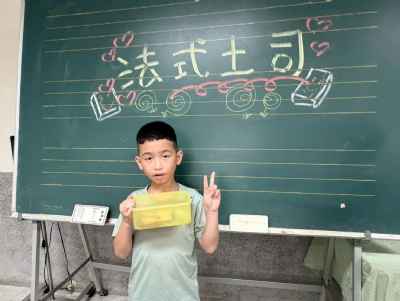 法式土司